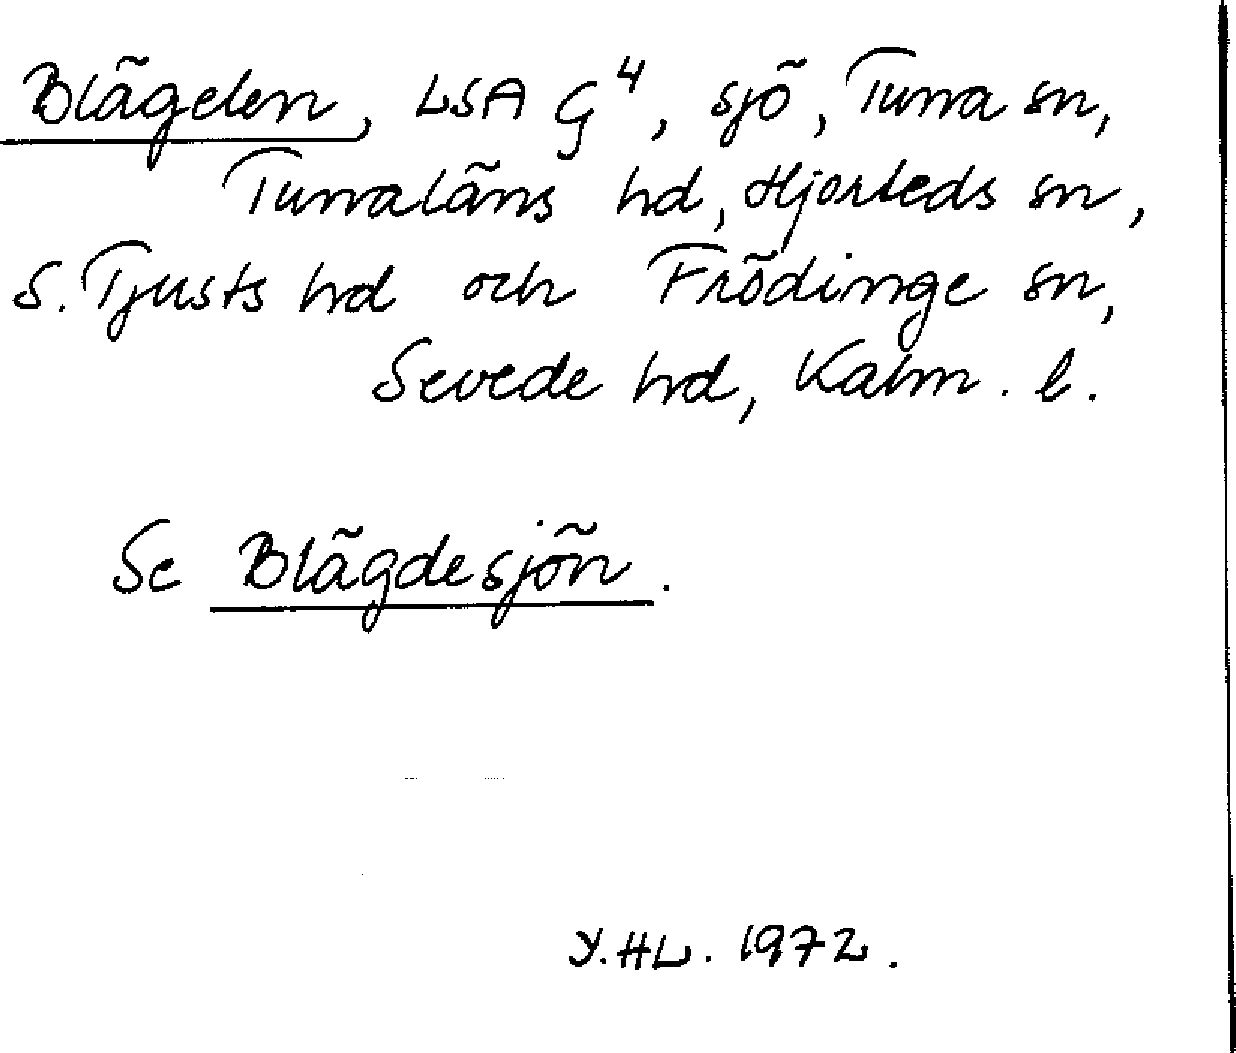 Blägelen, LSA G⁴, sjö, Tuna sn,
Tunaläns hd, Hjorteds sn,
S. Tjusts hd och Frödinge sn,
Sevede hd, Kalm. l.
Se Blägdesjön.
Y.HL. 1972.